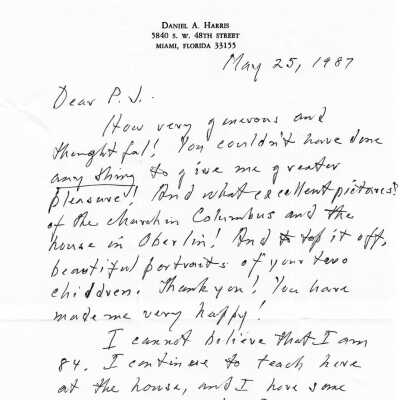 DANIEL A. HARRIS
5840 S. W. 48TH STREET
MIAMI, FLORIDA 33155
May 25, 1987
Dear P. J..
How very generous and
thoughtful! You couldn't have done
any thing to give me greater
pleasure! And what excellent pictures!
of the church in Columbus and the
house in Oberlin! And to top it off,
beautiful portraits of your two
children. Thank you! You have
made me very happy!
I cannot believe that I am
84. I continue to teach here
at the house, and I have some